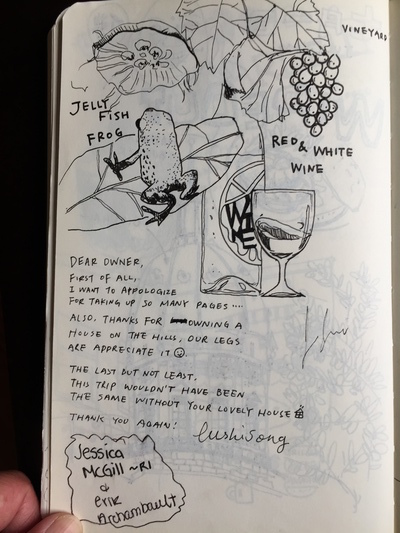 VINEYARD
JELLY
FISH
FROG
RED & WHITE
WINE
WINE
DEAR OWNER,
FIRST OF ALL,
I WANT TO APPOLOGIZE
FOR TAKING UP SO MANY PAGES ....
ALSO, THANKS FOR OWNING A
HOUSE ON THE HILLS, OUR LEGS
ARE APPRECIATE IT ☺.
THE LAST BUT NOT LEAST,
THIS TRIP WOULDN'T HAVE BEEN
THE SAME WITHOUT YOUR LOVELY HOUSE
THANK YOU AGAIN!
Jessica
McGill ~RI
&
erik
Archambault